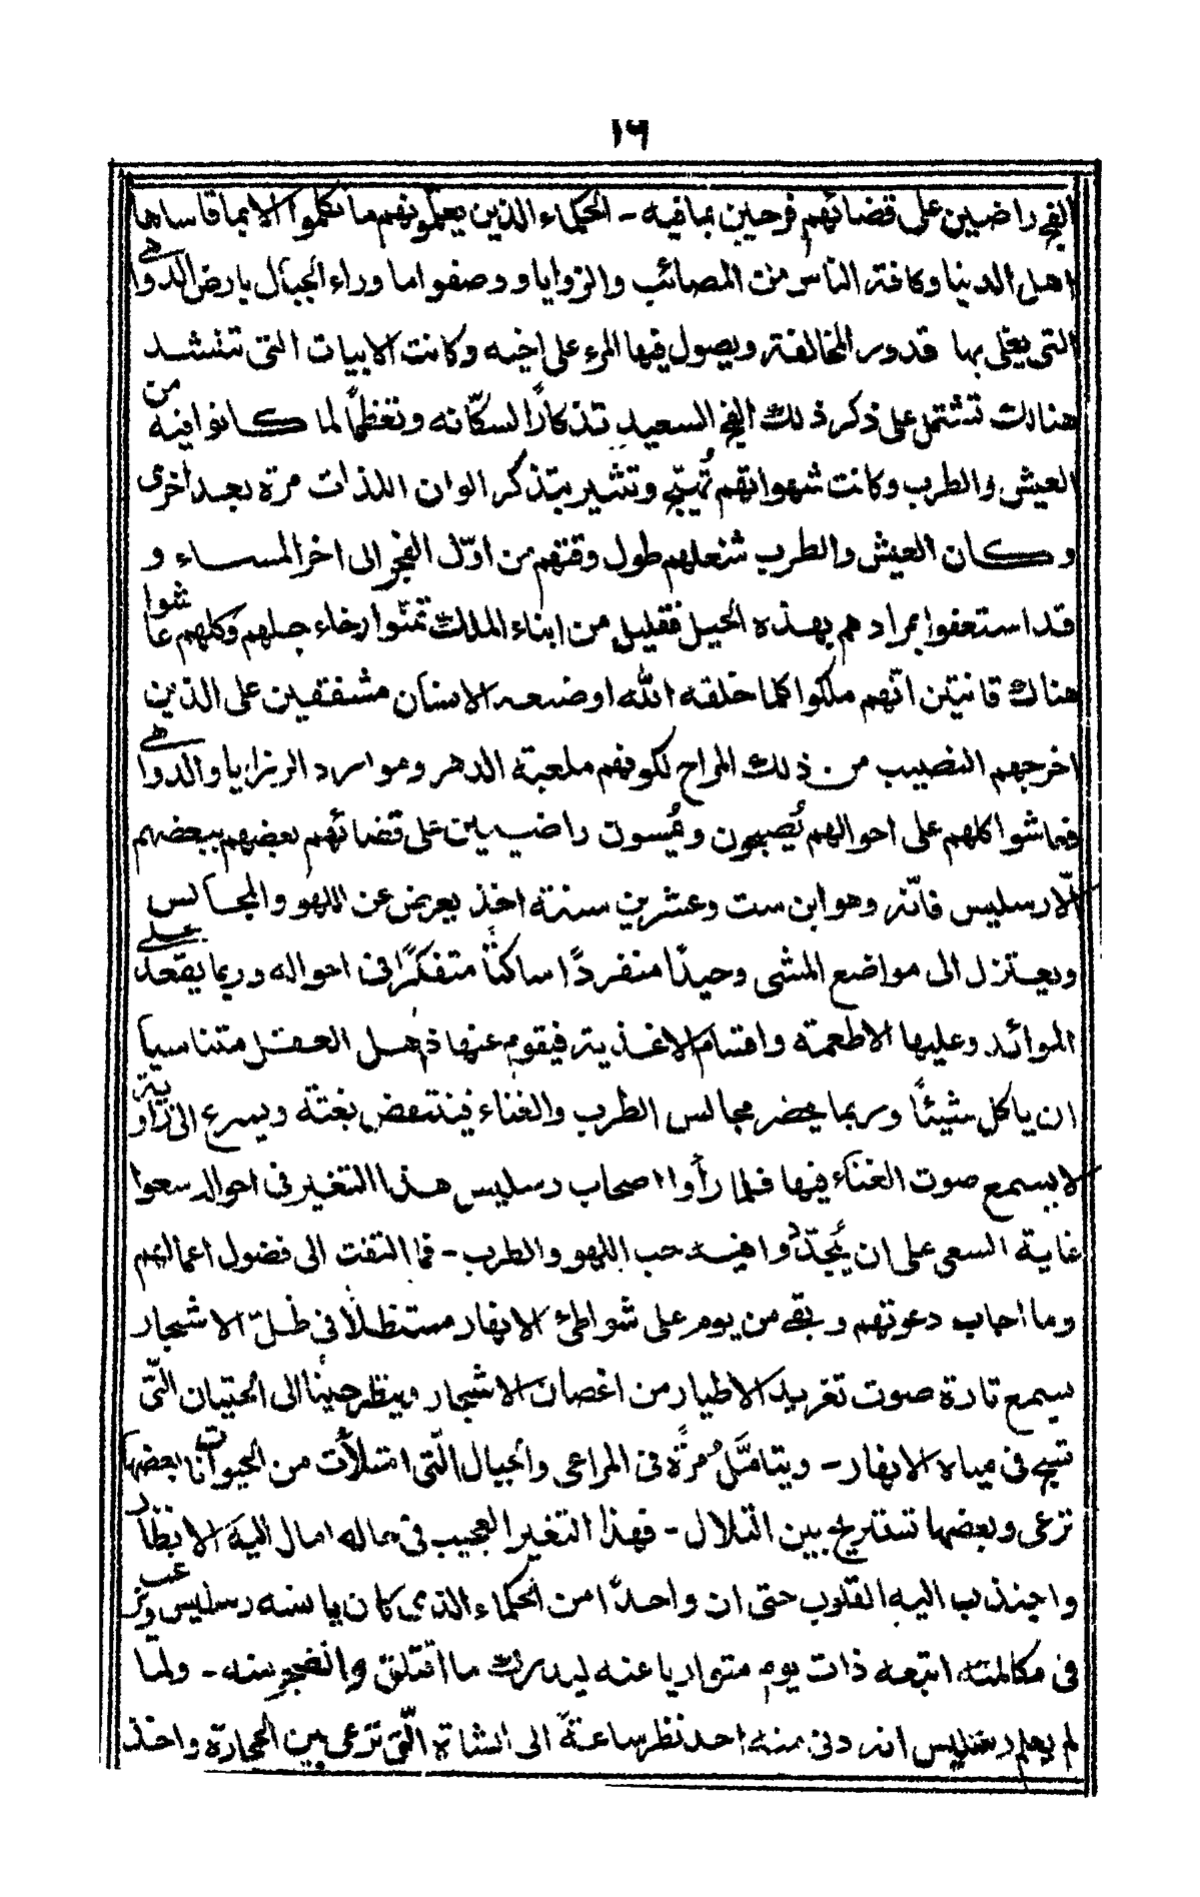 ١٦
الفج راضين على قضائهم فرحين بمافيه - الحكماء الذين يعلّمونهم ما تكلموا الا بما قاساها
اهل الدنيا وكافة الناس من المصائب والرزايا و وصفوا ما وراء الجبال بارض الدواهى
التى يغلى بها قدور المخالفة ويصول فيها المرء على اخيه وكانت الابيات التى تنشد
هنالك تشتمل على ذكر ذلك الفج السعيد تذكارًا لسكّانه وتعظيمًا لما كانوا فيه من
العيش والطرب وكانت شهواتهم تُهيّج وتثير بتذكر الوان اللذات مرة بعد اخرى
و كان العيش والطرب شغلهم طول وقتهم من اوّل الفجر الى اخر المساء و
قد استعفوا بمرادهم بهذه الحيل فقليل من ابناء الملك تمنّوا رخاء جبلهم وكلهم عاشوا
هناك قانتين انّهم ملكوا كلما خلقه الله او ضعه الانسان مشفقين على الذين
اخرجهم النصيب من ذلك المراح لكونهم ملعبة الدهر وموارد الرزايا والدواهى
فعاشوا كلهم على احوالهم يُصبحون ويُمسون راضيين على قضائهم بعضهم ببعضهم
الّا رسليس فانّه وهو ابن ست وعشرين سنة اخذ يعرض عن اللهو والمجالس
ويعتزل الى مواضع المشى وحيدًا منفردًا ساكتًا متفكرًا فى احواله وربما يقعد على
الموائد وعليها الاطعمة واقسام الاغذية فيقوم عنها ذهل العقل متناسيا
ان ياكل شيئًا وربما يحضر مجالس الطرب والغناء فينتهض بغتة ويسرع الى زاوية
لا يسمع صوت الغناء فيها فلما رأوا اصحاب رسليس هذا التغير فى احواله سعوا
غاية السعى على ان يُجدّدوا فيه حب اللهو والطرب - فما التفت الى فضول اعمالهم
وما اجاب دعوتهم وبقى من يوم على شواطئ الانهار مستظلًا فى ظلّ الاشجار
يسمع تارة صوت تغريد الاطيار من اغصان الاشجار وينظر حينًا الى الحيتان التّى
تسبح فى مياه الانهار - ويتامّل مُرّةً فى المراعى والجبال الّتى امتلأت من الحيوانات بعضها
ترعى وبعضها تستريح بين التلال - فهذا التغير العجيب فى حاله امال اليه الانظار
واجتذب اليه القلوب حتى ان واحدًا من الحكماء الذى كان يانسه رسليس ويرغب
فى مكالمته اتبعه ذات يوم متواريا عنه ليدرك ما اقتلق وانضجر منه - ولمّا
لم يعلم رسليس انه دنى منه احد نظر ساعةً الى الشاة الّتى ترعى بين الحجارة واخذ